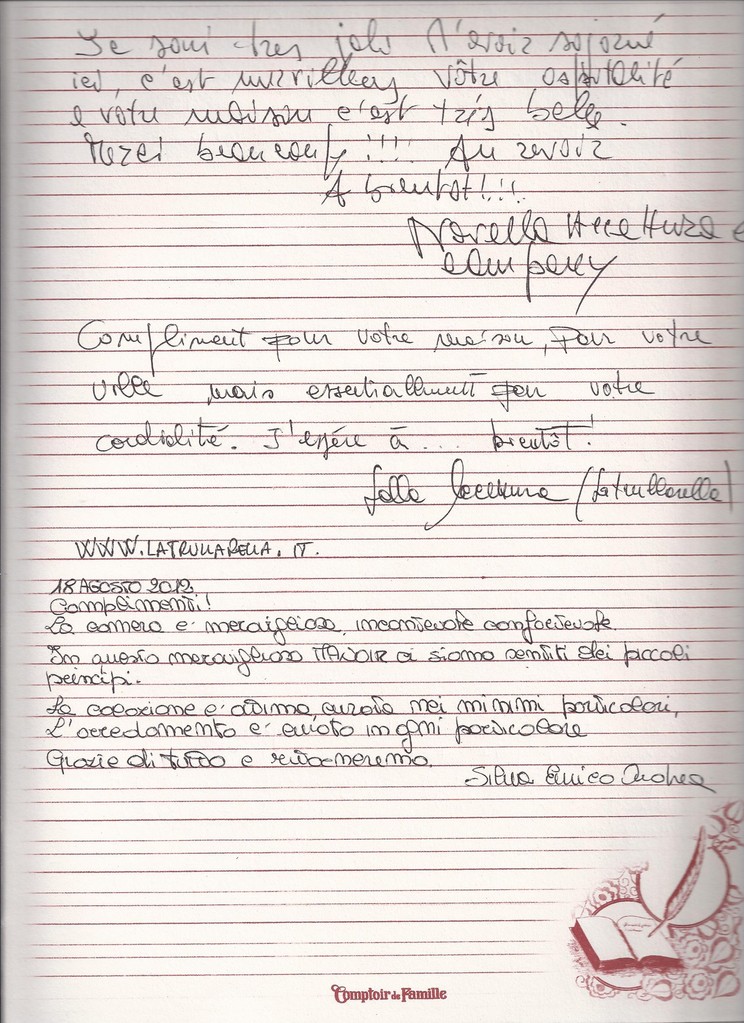 Je soui tres joli d'avoir sojorné
ici, c'est mervilleus vôtre ospitalité
e votre maison c'est très belle.
Merci beaucoup !!!! Au revoir
A breutot!!!
Novella
company
Compliment pour votre maison, pour votre
ville mais essentiallment pour votre
cordialité. J'espére à ... bientôt!
WWW.LATRULLARELLA.IT.
18 AGOSTO 2012.
Complimenti!
La camera é meravigliosa, incantevole confortevole.
In questo meraviglioso MANOIR ci siamo sentiti dei piccoli
principi.
La colazione é ottima, curata nei minimi particolari,
L'arredamento é curato in ogni particolare
Grazie di tutto e ritorneremo.
Silvia Enrico Andrea
Comptoir de Famille